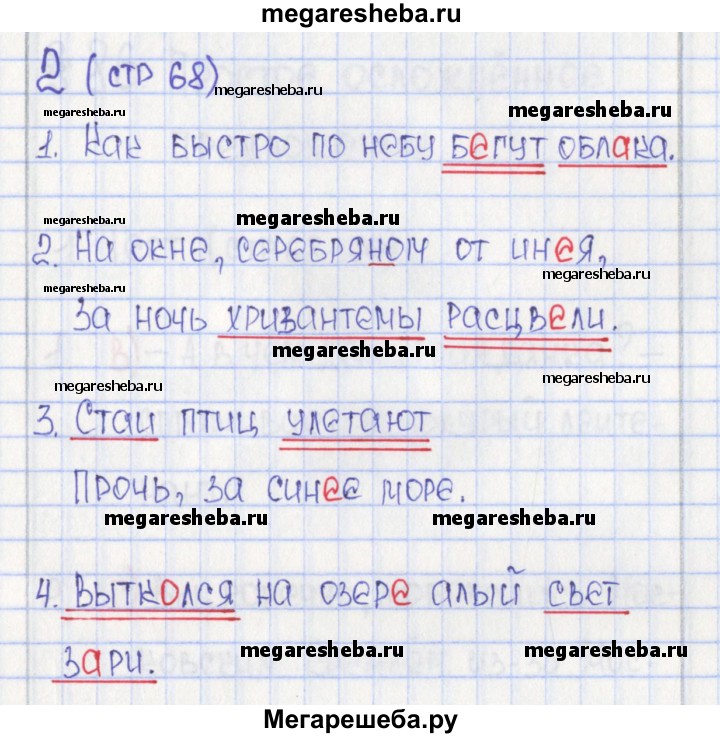 megaresheba.ru
2 (стр 68)
megaresheba.ru
megaresheba.ru
megaresheba.ru
1. Как быстро по небу бегут облака.
megaresheba.ru
megaresheba.ru
2. На окне, серебряном от инея,
megaresheba.ru
За ночь хризантемы расцвели.
megaresheba.ru
megaresheba.ru
megaresheba.ru
3. Стаи птиц улетают
Прочь, за синее море.
megaresheba.ru
megaresheba.ru
4. Вытколся на озере алый свет
зари.
megaresheba.ru
megaresheba.ru
Мегарешеба.ру